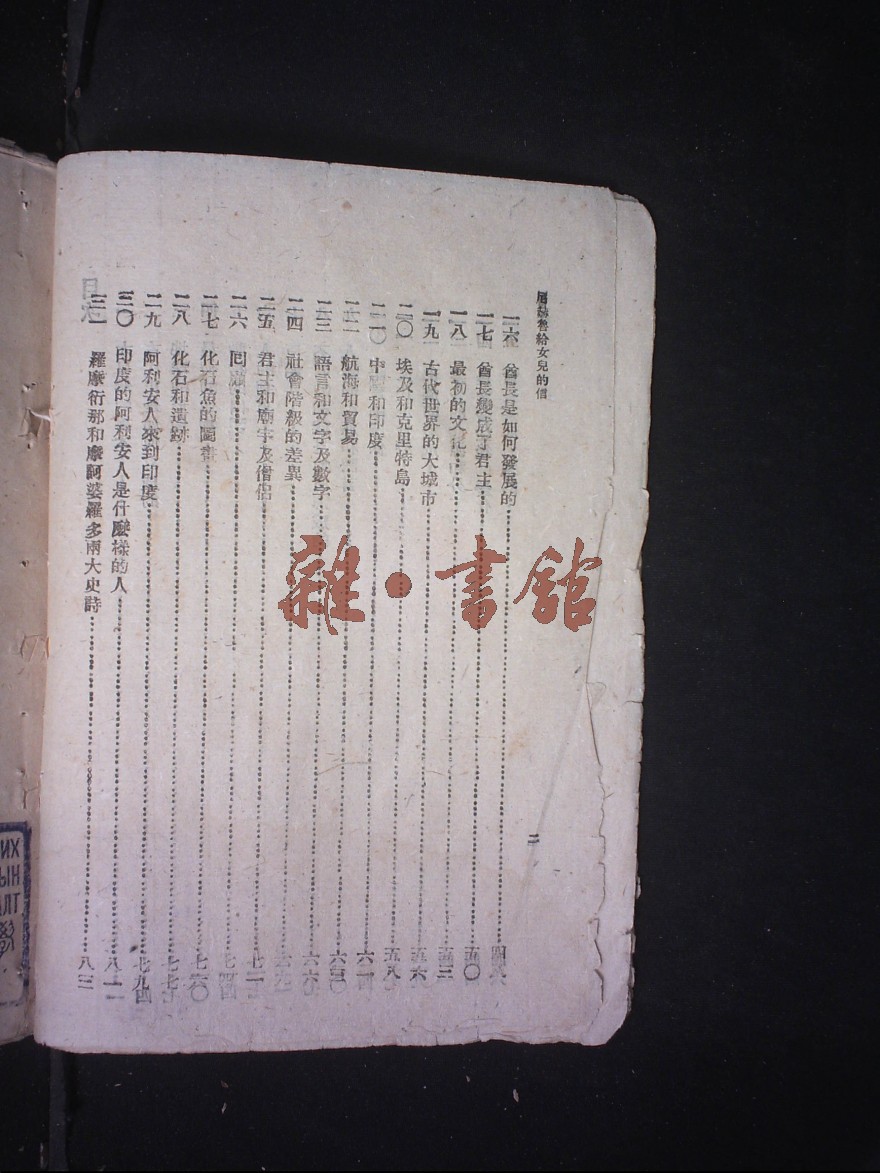 尼赫魯給女兒的信
二
一六 酋長是如何發展的
一七 酋長變成了君主 五〇
一八 最初的文化 五三
一九 古代世界的大城市 五六
二〇 埃及和克里特島 五八
二一 中國和印度 六一
二二 航海和貿易
二三 語言和文字及數字 六六
二四 社會階級的差異 六九
二五 君主和廟宇及僧侶 七一
二六 回顧 七四
二七 化石魚的圖畫
二八 化石和遺跡 七七
二九 阿利安人來到印度 七九
三〇 印度的阿利安人是什麼樣的人 八一
三一 羅摩衍那和摩訶婆羅多兩大史詩 八三
雜·書館
ИХ
ЫН
АЛТ